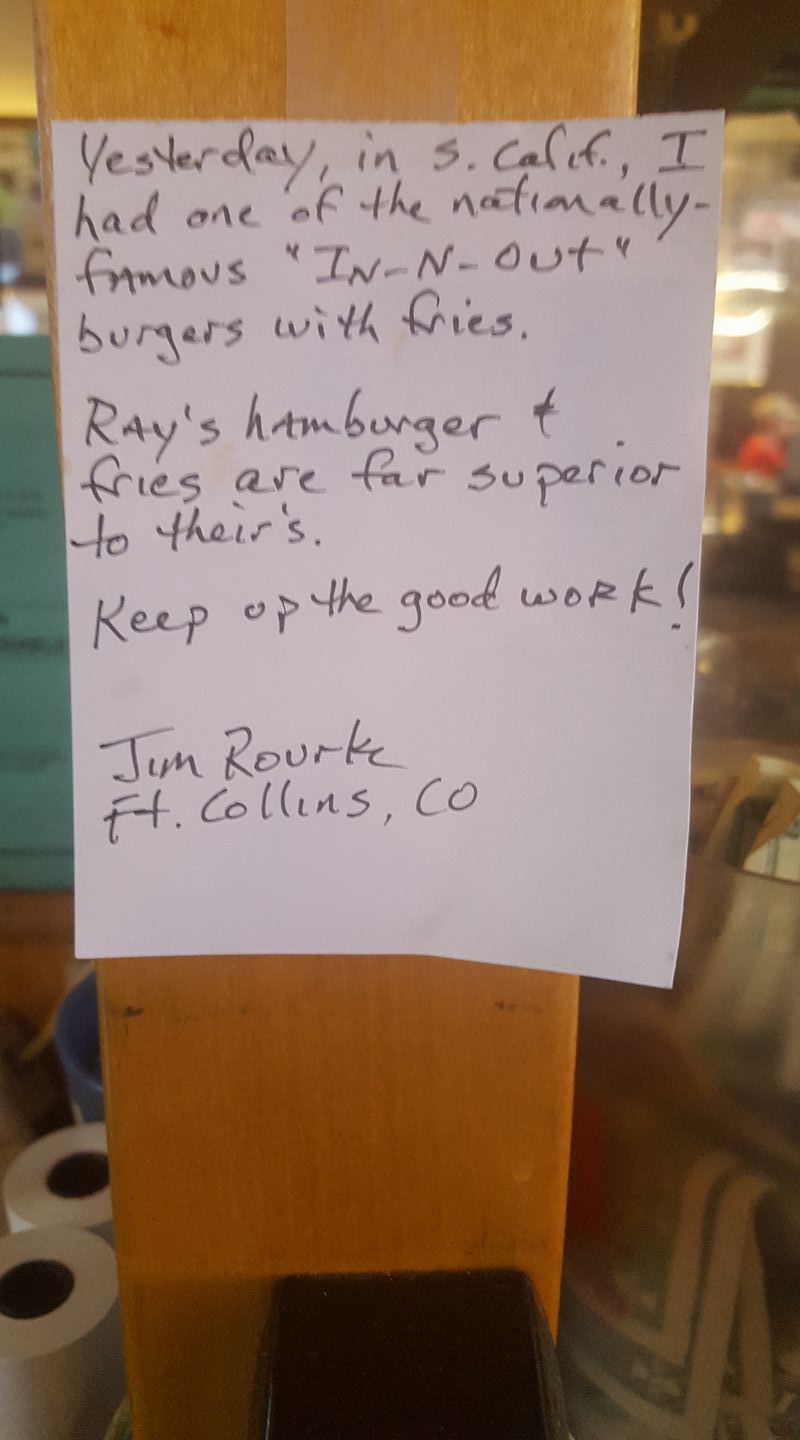 Yesterday, in S. Calif., I
had one of the nationally-
famous "IN-N-OUT"
burgers with fries.
RAY'S hamburger &
fries are far superior
to their's.
Keep up the good work!
Jim Rourke
Ft. Collins, CO